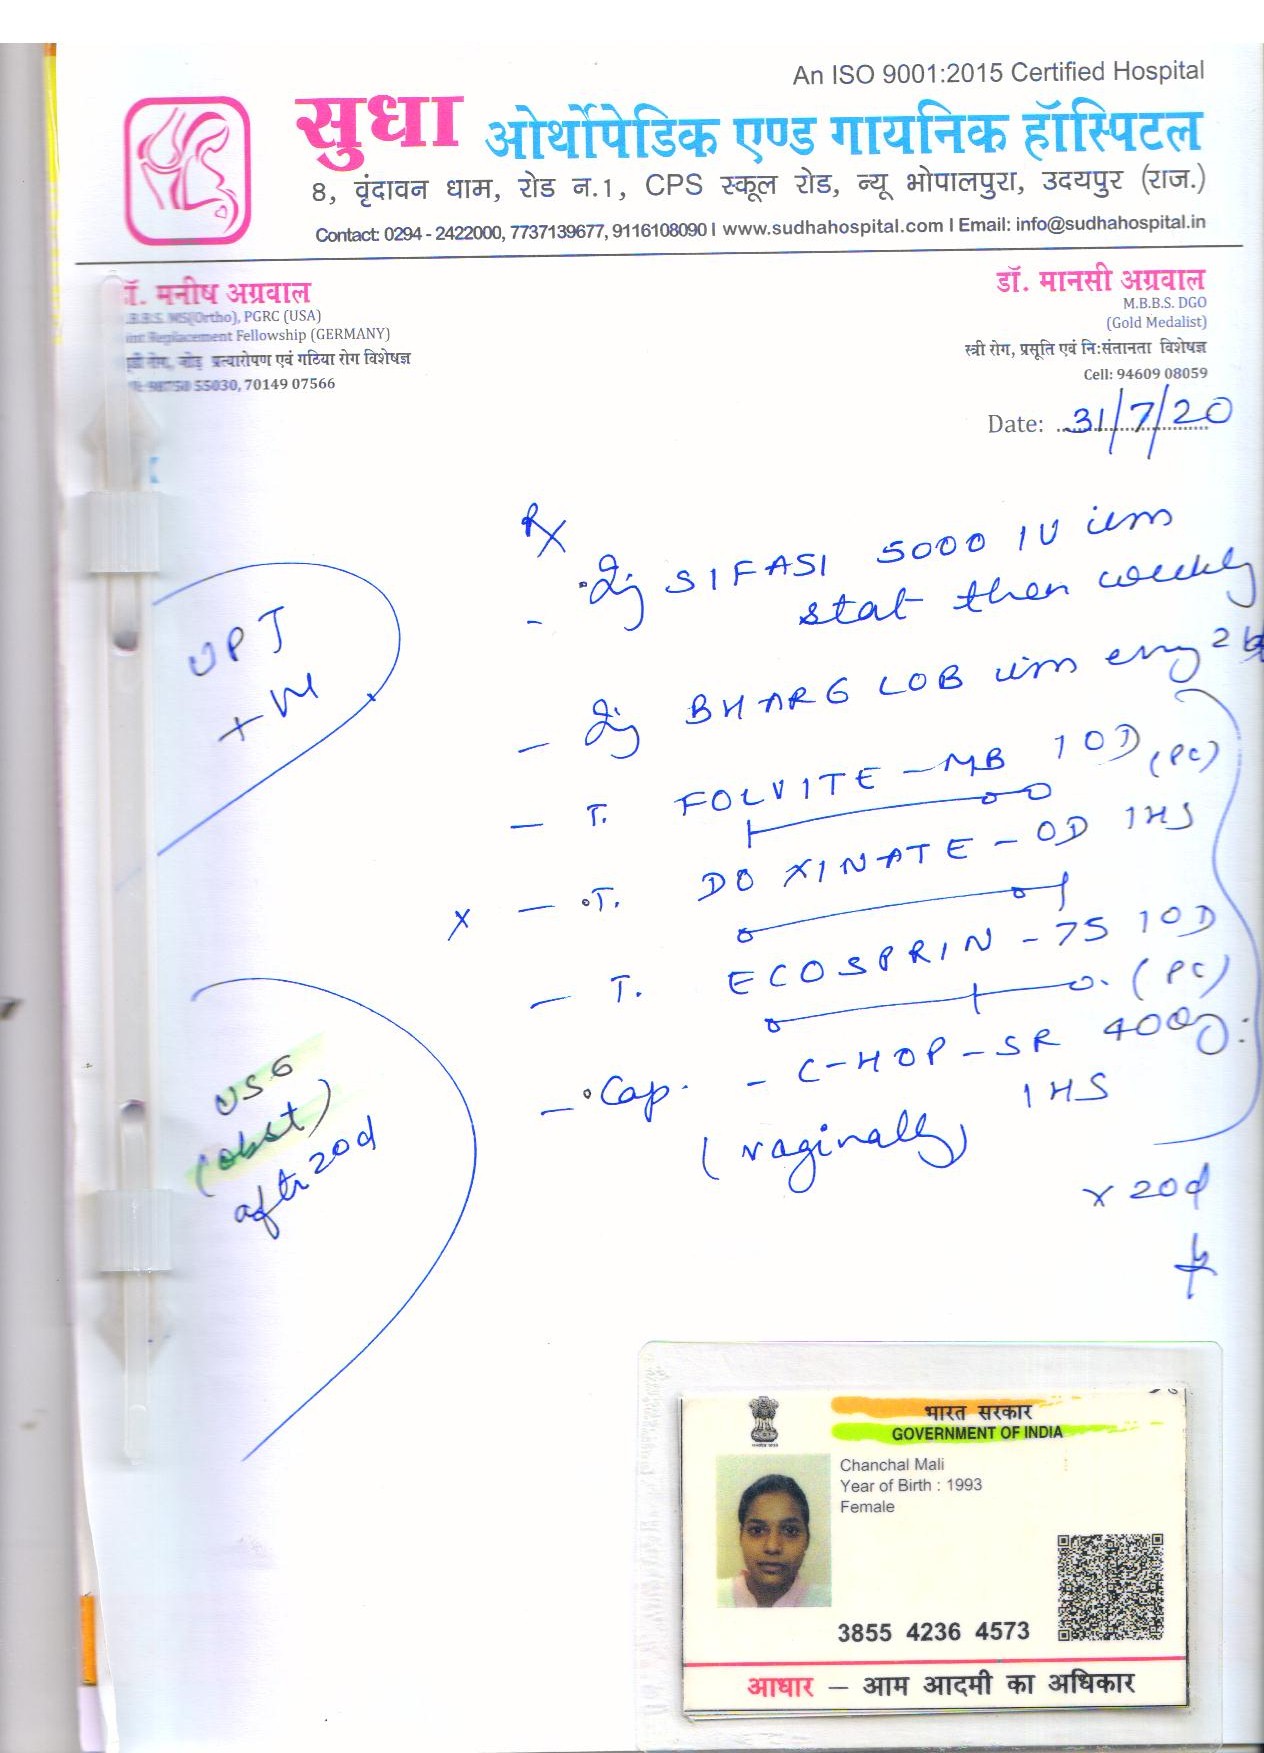 An ISO 9001:2015 Certified Hospital
सुधा ओर्थोपेडिक एण्ड गायनिक हॉस्पिटल
8, वृंदावन धाम, रोड न.1, CPS स्कूल रोड, न्यू भोपालपुरा, उदयपुर (राज.)
Contact: 0294 - 2422000, 7737139677, 9116108090 I www.sudhahospital.com I Email: info@sudhahospital.in
डॉ. मनीष अग्रवाल
M.B.B.S. MS(Ortho), PGRC (USA)
Joint Replacement Fellowship (GERMANY)
प्रत्यारोपण एवं गठिया रोग विशेषज्ञ
55030, 70149 07566
डॉ. मानसी अग्रवाल
M.B.B.S. DGO
(Gold Medalist)
स्त्री रोग, प्रसूति एवं निःसंतानता विशेषज्ञ
Cell: 94609 08059
Date: 31/7/20
UPT
+ve
Rx
- Inj SIFASI 5000 IU im
stat then weekly
- Inj BHARGLOB im every 2
- T. FOLVITE - MB 1 OD (PC)
x - T. DOXINATE - OD 1 HS
- T. ECOSPRIN - 75 1 OD
(PC)
- Cap. - C-HOP-SR 400
1 HS
(vaginally)
x 20d
USG
(obst)
aftr 20d
भारत सरकार
GOVERNMENT OF INDIA
Chanchal Mali
Year of Birth : 1993
Female
3855 4236 4573
आधार — आम आदमी का अधिकार